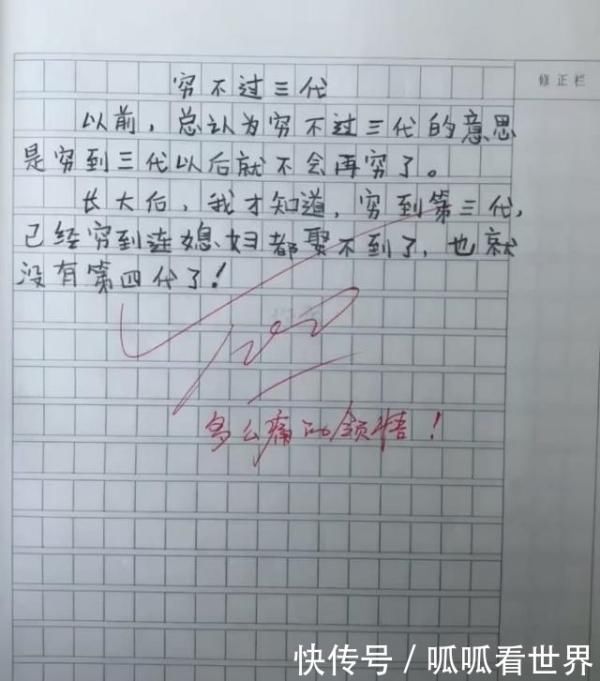 修正栏
穷不过三代
以前，总认为穷不过三代的意思
是穷到三代以后就不会再穷了。
长大后，我才知道，穷到第三代，
已经穷到连媳妇都娶不到了，也就
没有第四代了！
100
多么痛的领悟！
快传号/呱呱看世界